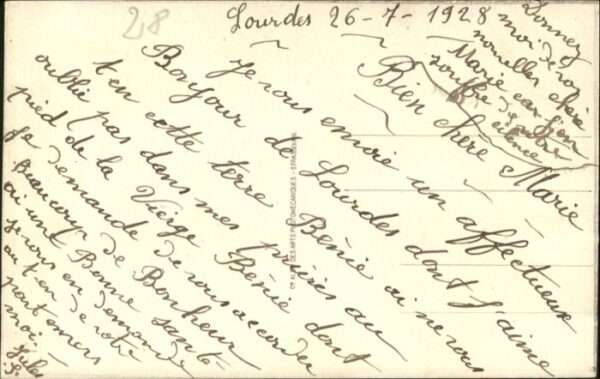 28
Lourdes 26-7-1928
Bien chère Marie
Je vous envoie un affectueux
Bonjour de Lourdes dont j'aime
t en cette terre Bénie ai ne vous
oublie pas dans mes prières au
pied de la Vierge Bénie dont
je demande de vous accorder
Beaucoup de Bonheur
ou une Bonne santé
je vous en demande
autten de votre
part envers
moi.
Jules
Donnez
moi de vos
nouvelles chère
Marie car j'en
souffre de votre
cilence